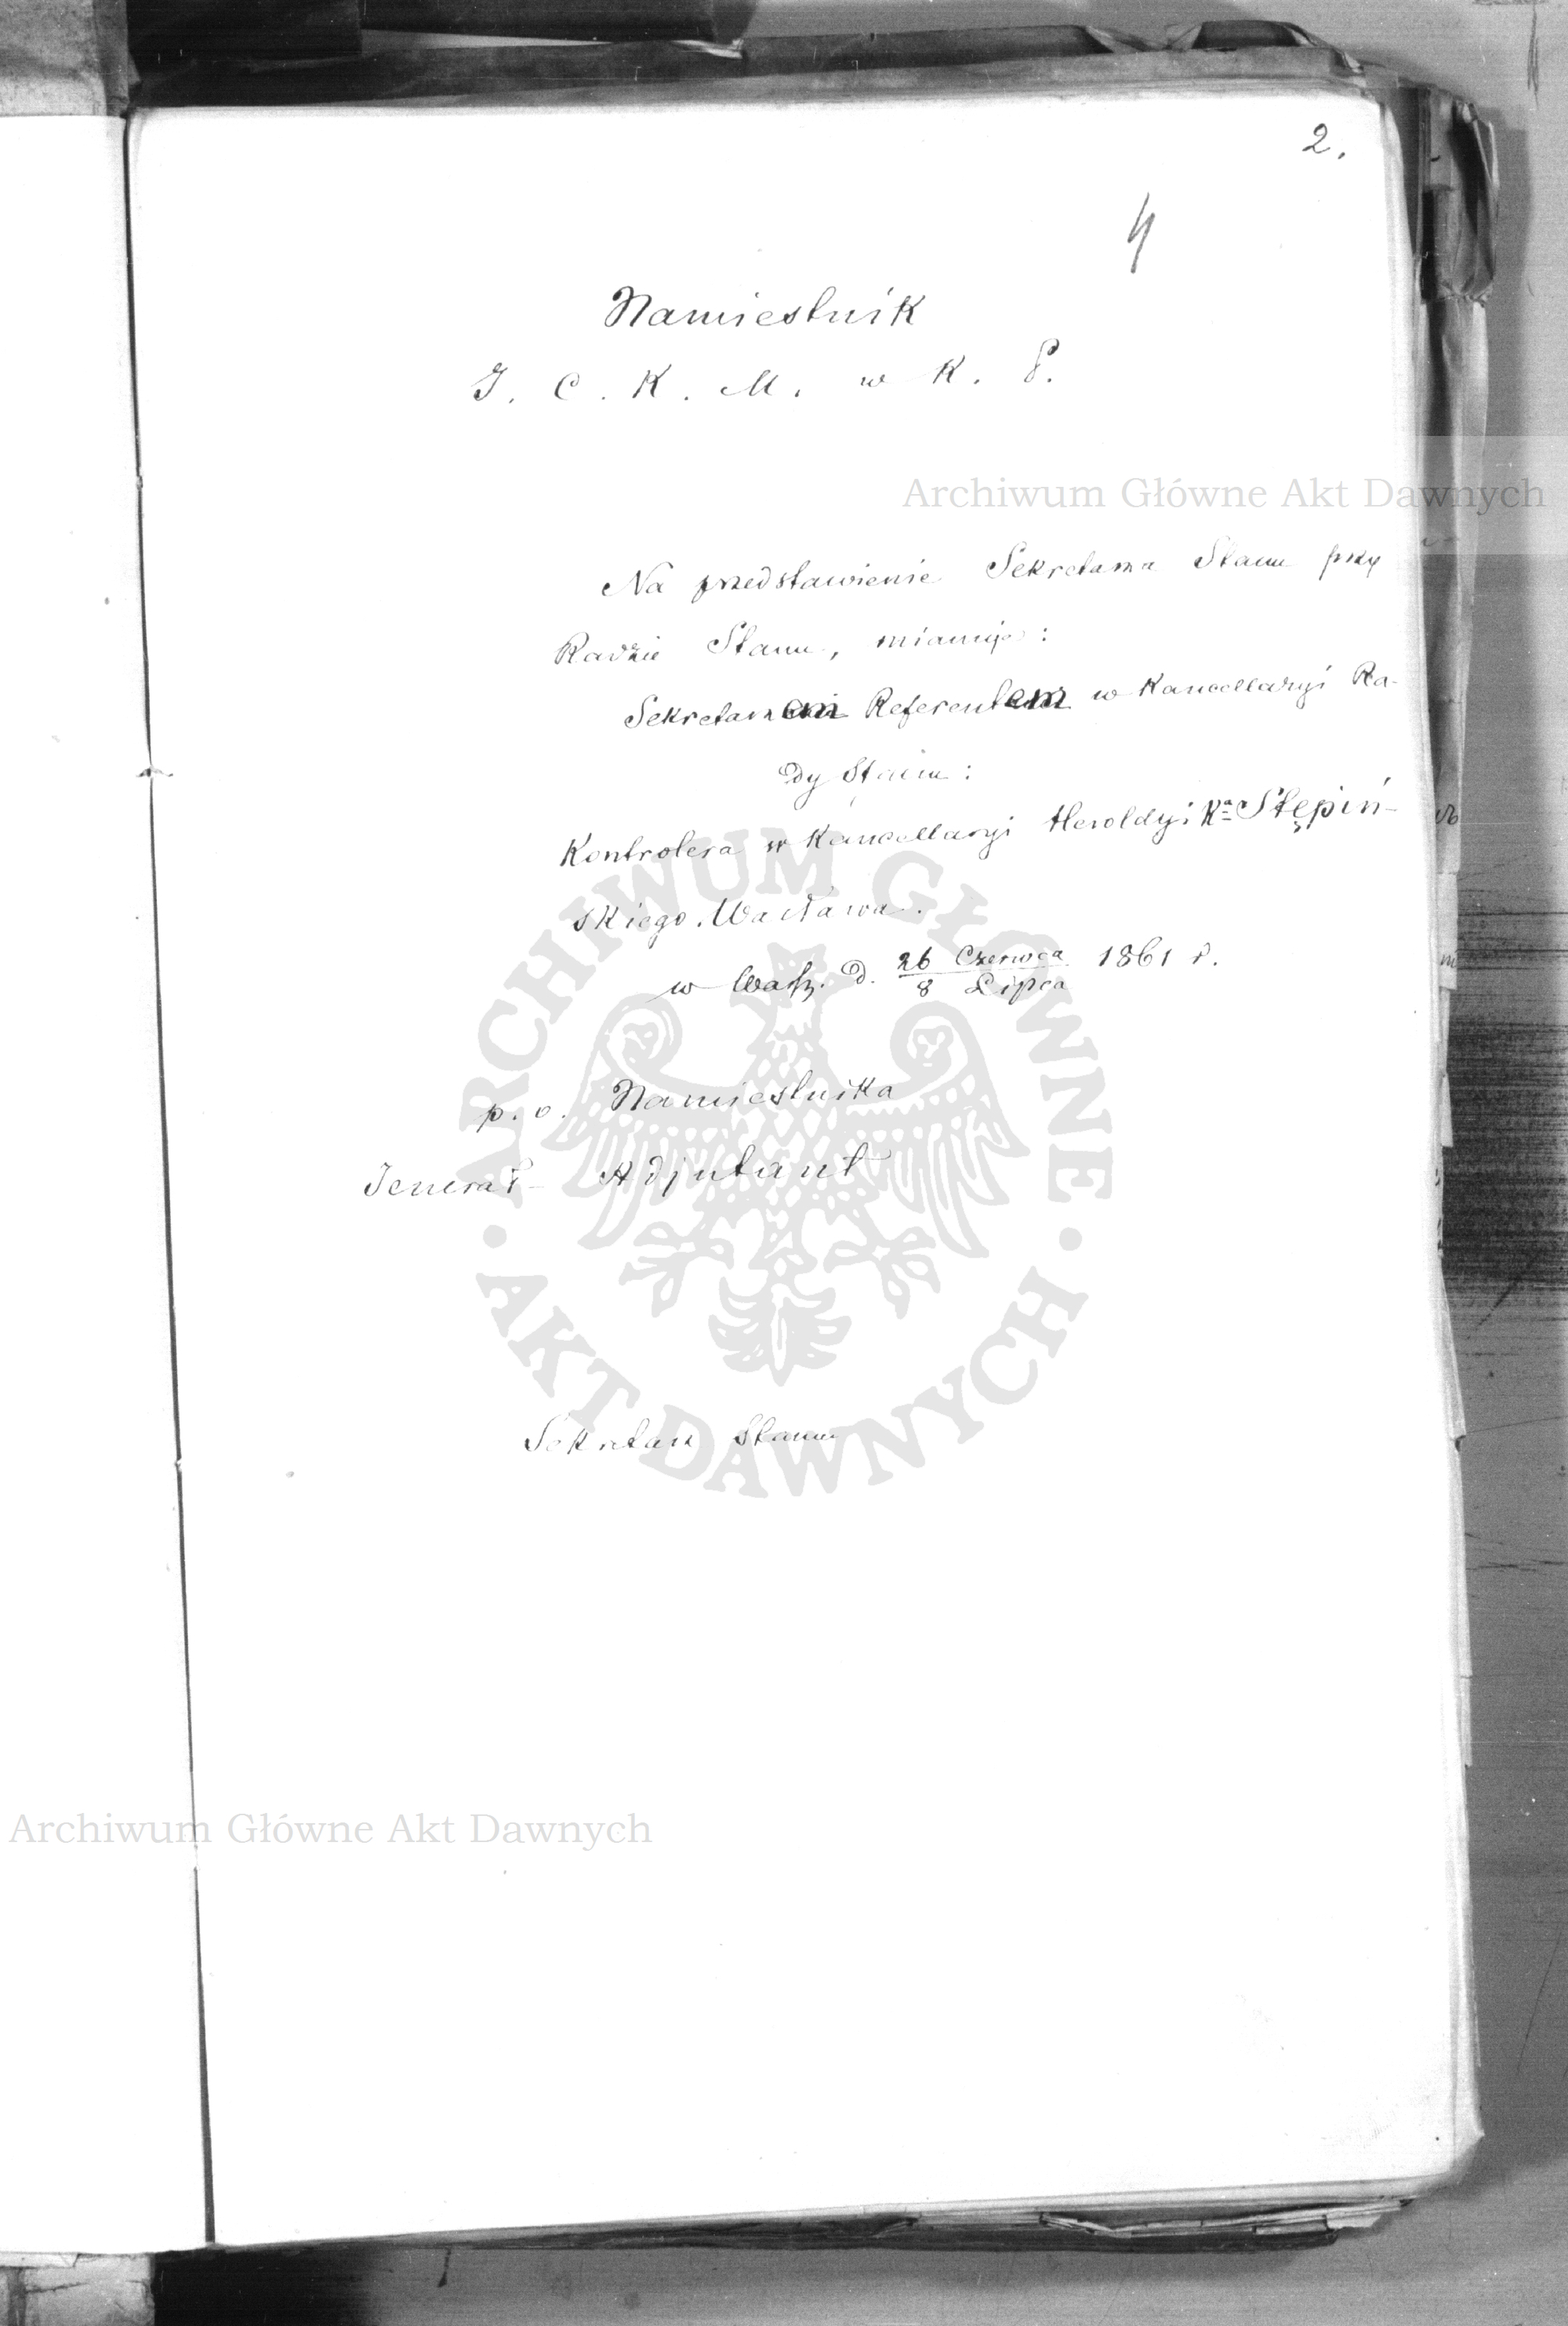 2.
4
Namiestnik
J. C. K. M. w K. P.
Archiwum Główne Akt Dawnych
Na przedstawienie Sekretarza Stanu przy
Radzie Stanu, mianuje:
Sekretarzem Referentem w Kancellaryi Ra-
dy Stanu:
Kontrolera w Kancellaryi Heroldyi Kª Stępiń-
skiego Wacława.
w Warsz. d. 26 Czerwca / 8 Lipca 1861 r.
p. o. Namiestnika
Jenerał- Adjutant
Sekretarz Stanu
ARCHIWUM GŁÓWNE
• AKT DAWNYCH •
Archiwum Główne Akt Dawnych